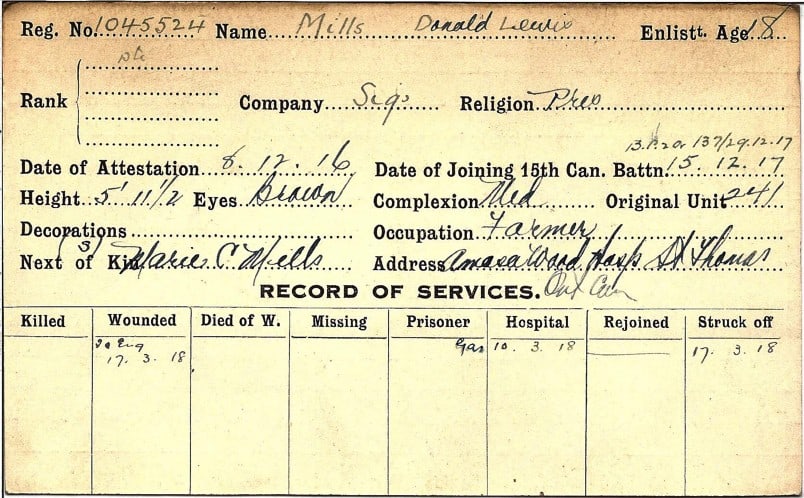 Reg. No. 1045524 Name Mills Donald Lewis Enlistt. Age 18
pte
Rank Company Sigs Religion Pres
B.P.2a 137/29.12.17
Date of Attestation 8.12.16 Date of Joining 15th Can. Battn. 15.12.17
Height 5' 11 1/2 Eyes Brown Complexion Med Original Unit 241
Decorations Occupation Farmer
(3)
Next of Kin Marie C. Mills Address Amasa Wood Hosp St Thomas
RECORD OF SERVICES. Ont Can
Killed Wounded Died of W. Missing Prisoner Hospital Rejoined Struck off
To Eng Gas 10. 3. 18 17. 3. 18
17. 3. 18